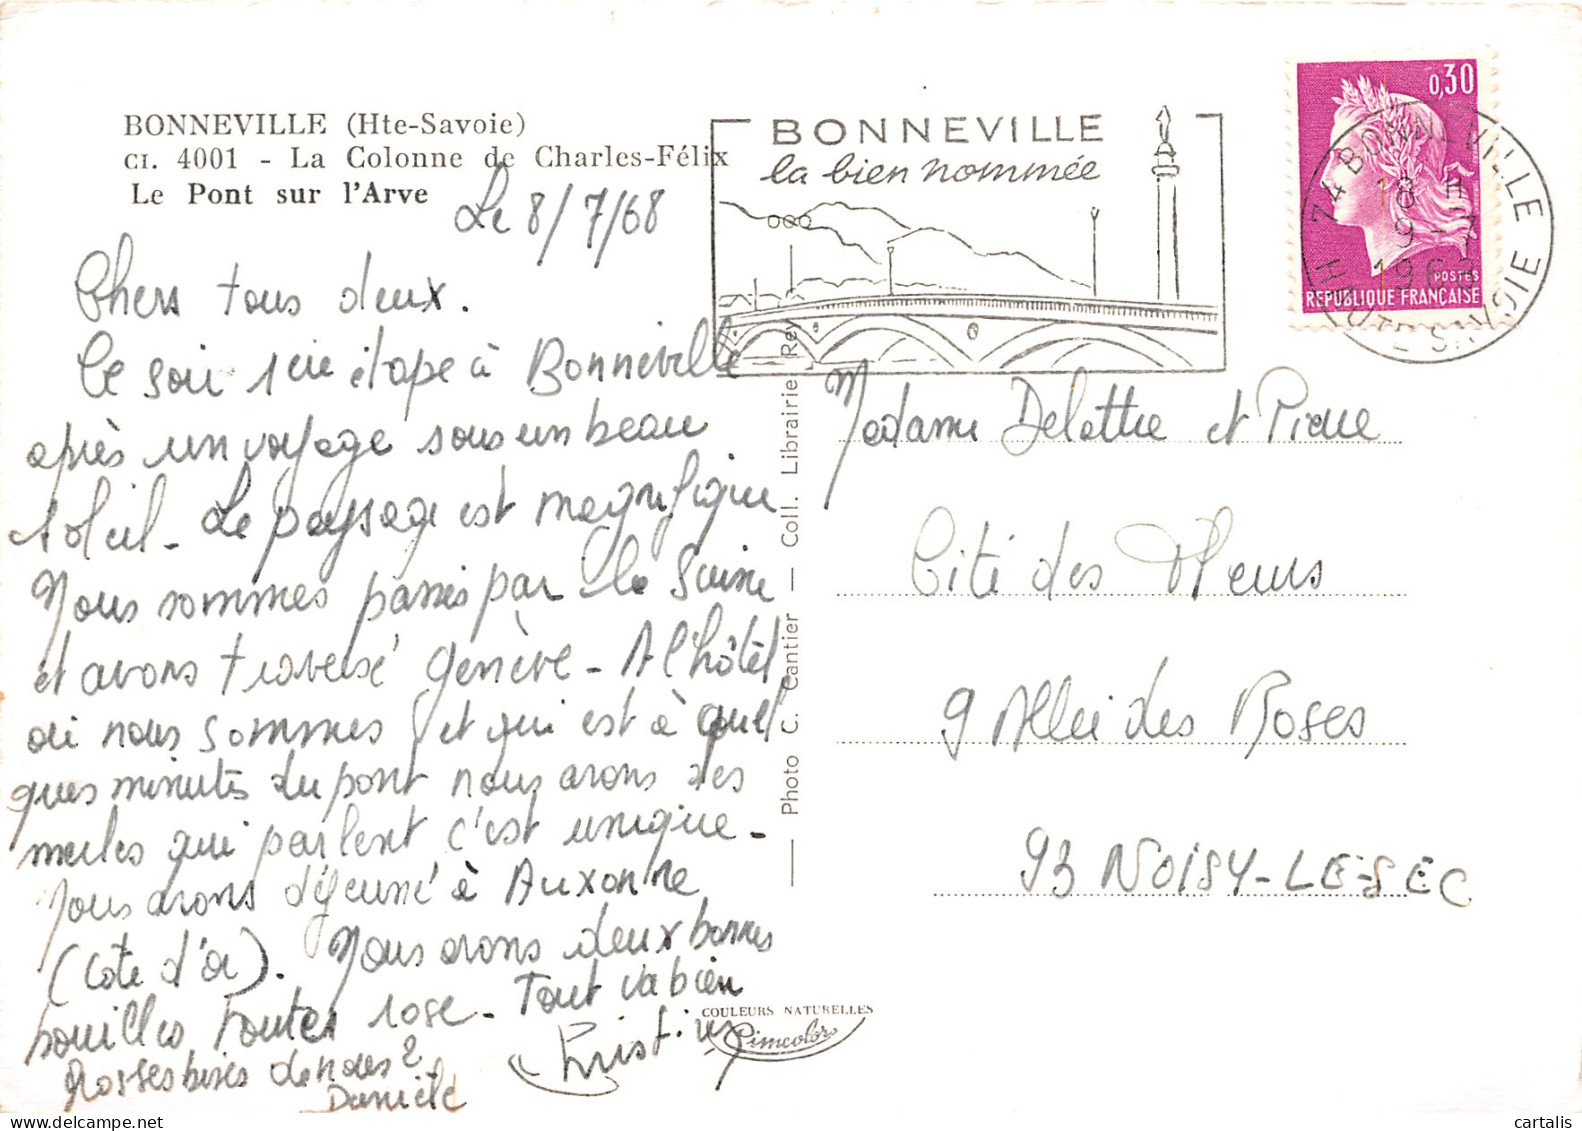 BONNEVILLE (Hte-Savoie)
CI. 4001 - La Colonne de Charles-Félix
Le Pont sur l'Arve
Le 8/7/68
Chers tous deux.
Ce soir 1ère étape à Bonneville
après un voyage sous un beau
soleil - Le paysage est magnifique
Nous sommes passés par la Suisse
et avons traversé Genève - A l'hôtel
où nous sommes et qui est à quel
ques minutes du pont nous avons des
merles qui parlent c'est unique -
Nous avons déjeuné à Auxonne
(Côte d'Or). Nous avons deux bonnes
bouilles toutes rose - Tout va bien
Grosses bises de nous 2
Danièle
Christian
BONNEVILLE
la bien nommée
0,30
POSTES
REPUBLIQUE FRANÇAISE
74 BONNEVILLE
18 H
9 - 7
1968
HAUTE SAVOIE
Madame Delattre et Pierre
Cité des Fleurs
9 Allée des Roses
93 NOISY-LE-SEC
Photo C. Cantier — Coll. Librairie Rey
COULEURS NATURELLES
Cimcolors
cartalis